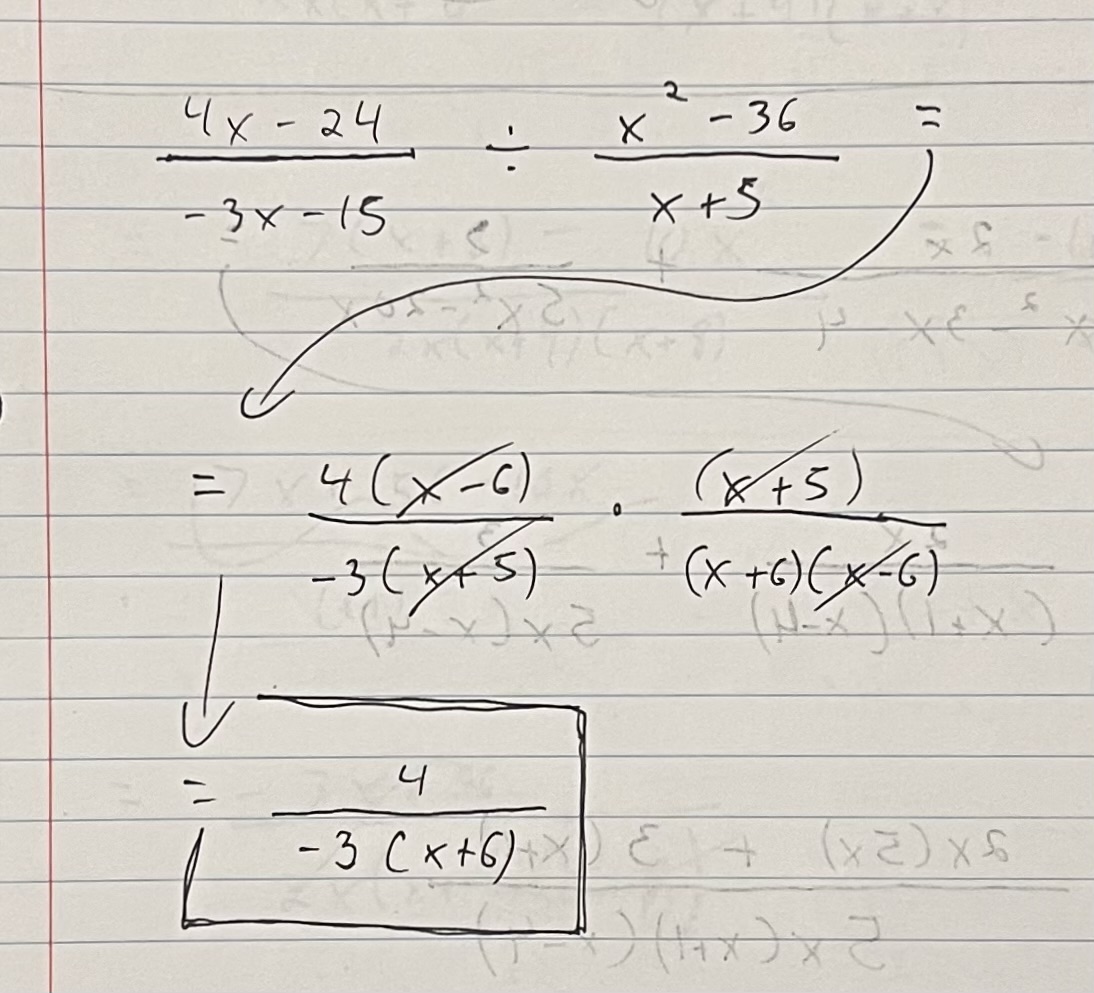 (4x - 24)/(-3x - 15) ÷ (x² - 36)/(x + 5) =
= 4(x - 6)/-3(x + 5) · (x + 5)/(x + 6)(x - 6)
= 4/-3(x + 6)